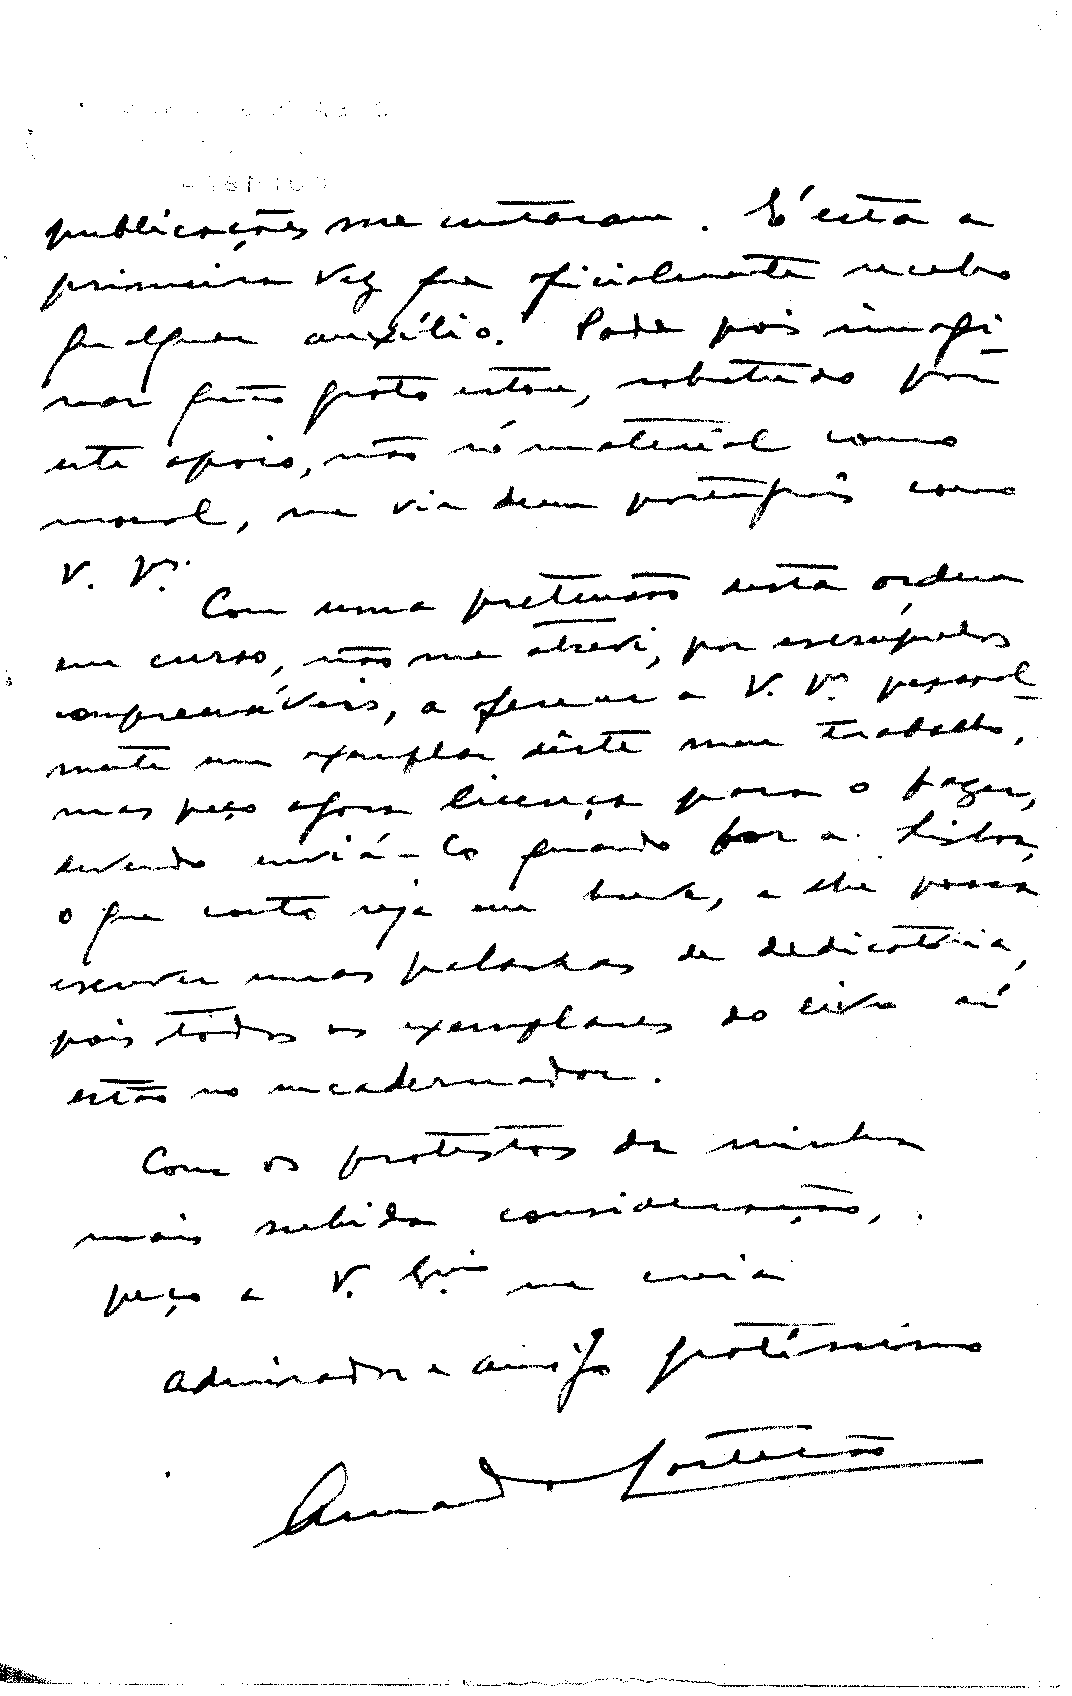 publicações me custaram. É esta a
primeira vez que oficialmente recebo
qualquer auxílio. Pode pois imagi-
nar quão grato estou, sobretudo por
este apoio, não só material como
moral, me vir dum português como
V. Ex.ª
Com uma pretensão desta ordem
em curso, não me atrevi, por escrúpulos
compreensíveis, a oferecer a V. Ex.ª pessoal-
mente um exemplar dêste meu trabalho,
mas peço agora licença para o fazer,
devendo enviá-lo quando for a Lisboa,
o que conto seja em breve, e lhe possa
escrever umas palavras de dedicatória,
pois todos os exemplares do livro aí
estão no encadernador.
Com os protestos da minha
mais subida consideração,
peço a V. Ex.ª me creia
admirador e amigo gratíssimo
Armando Cortesão